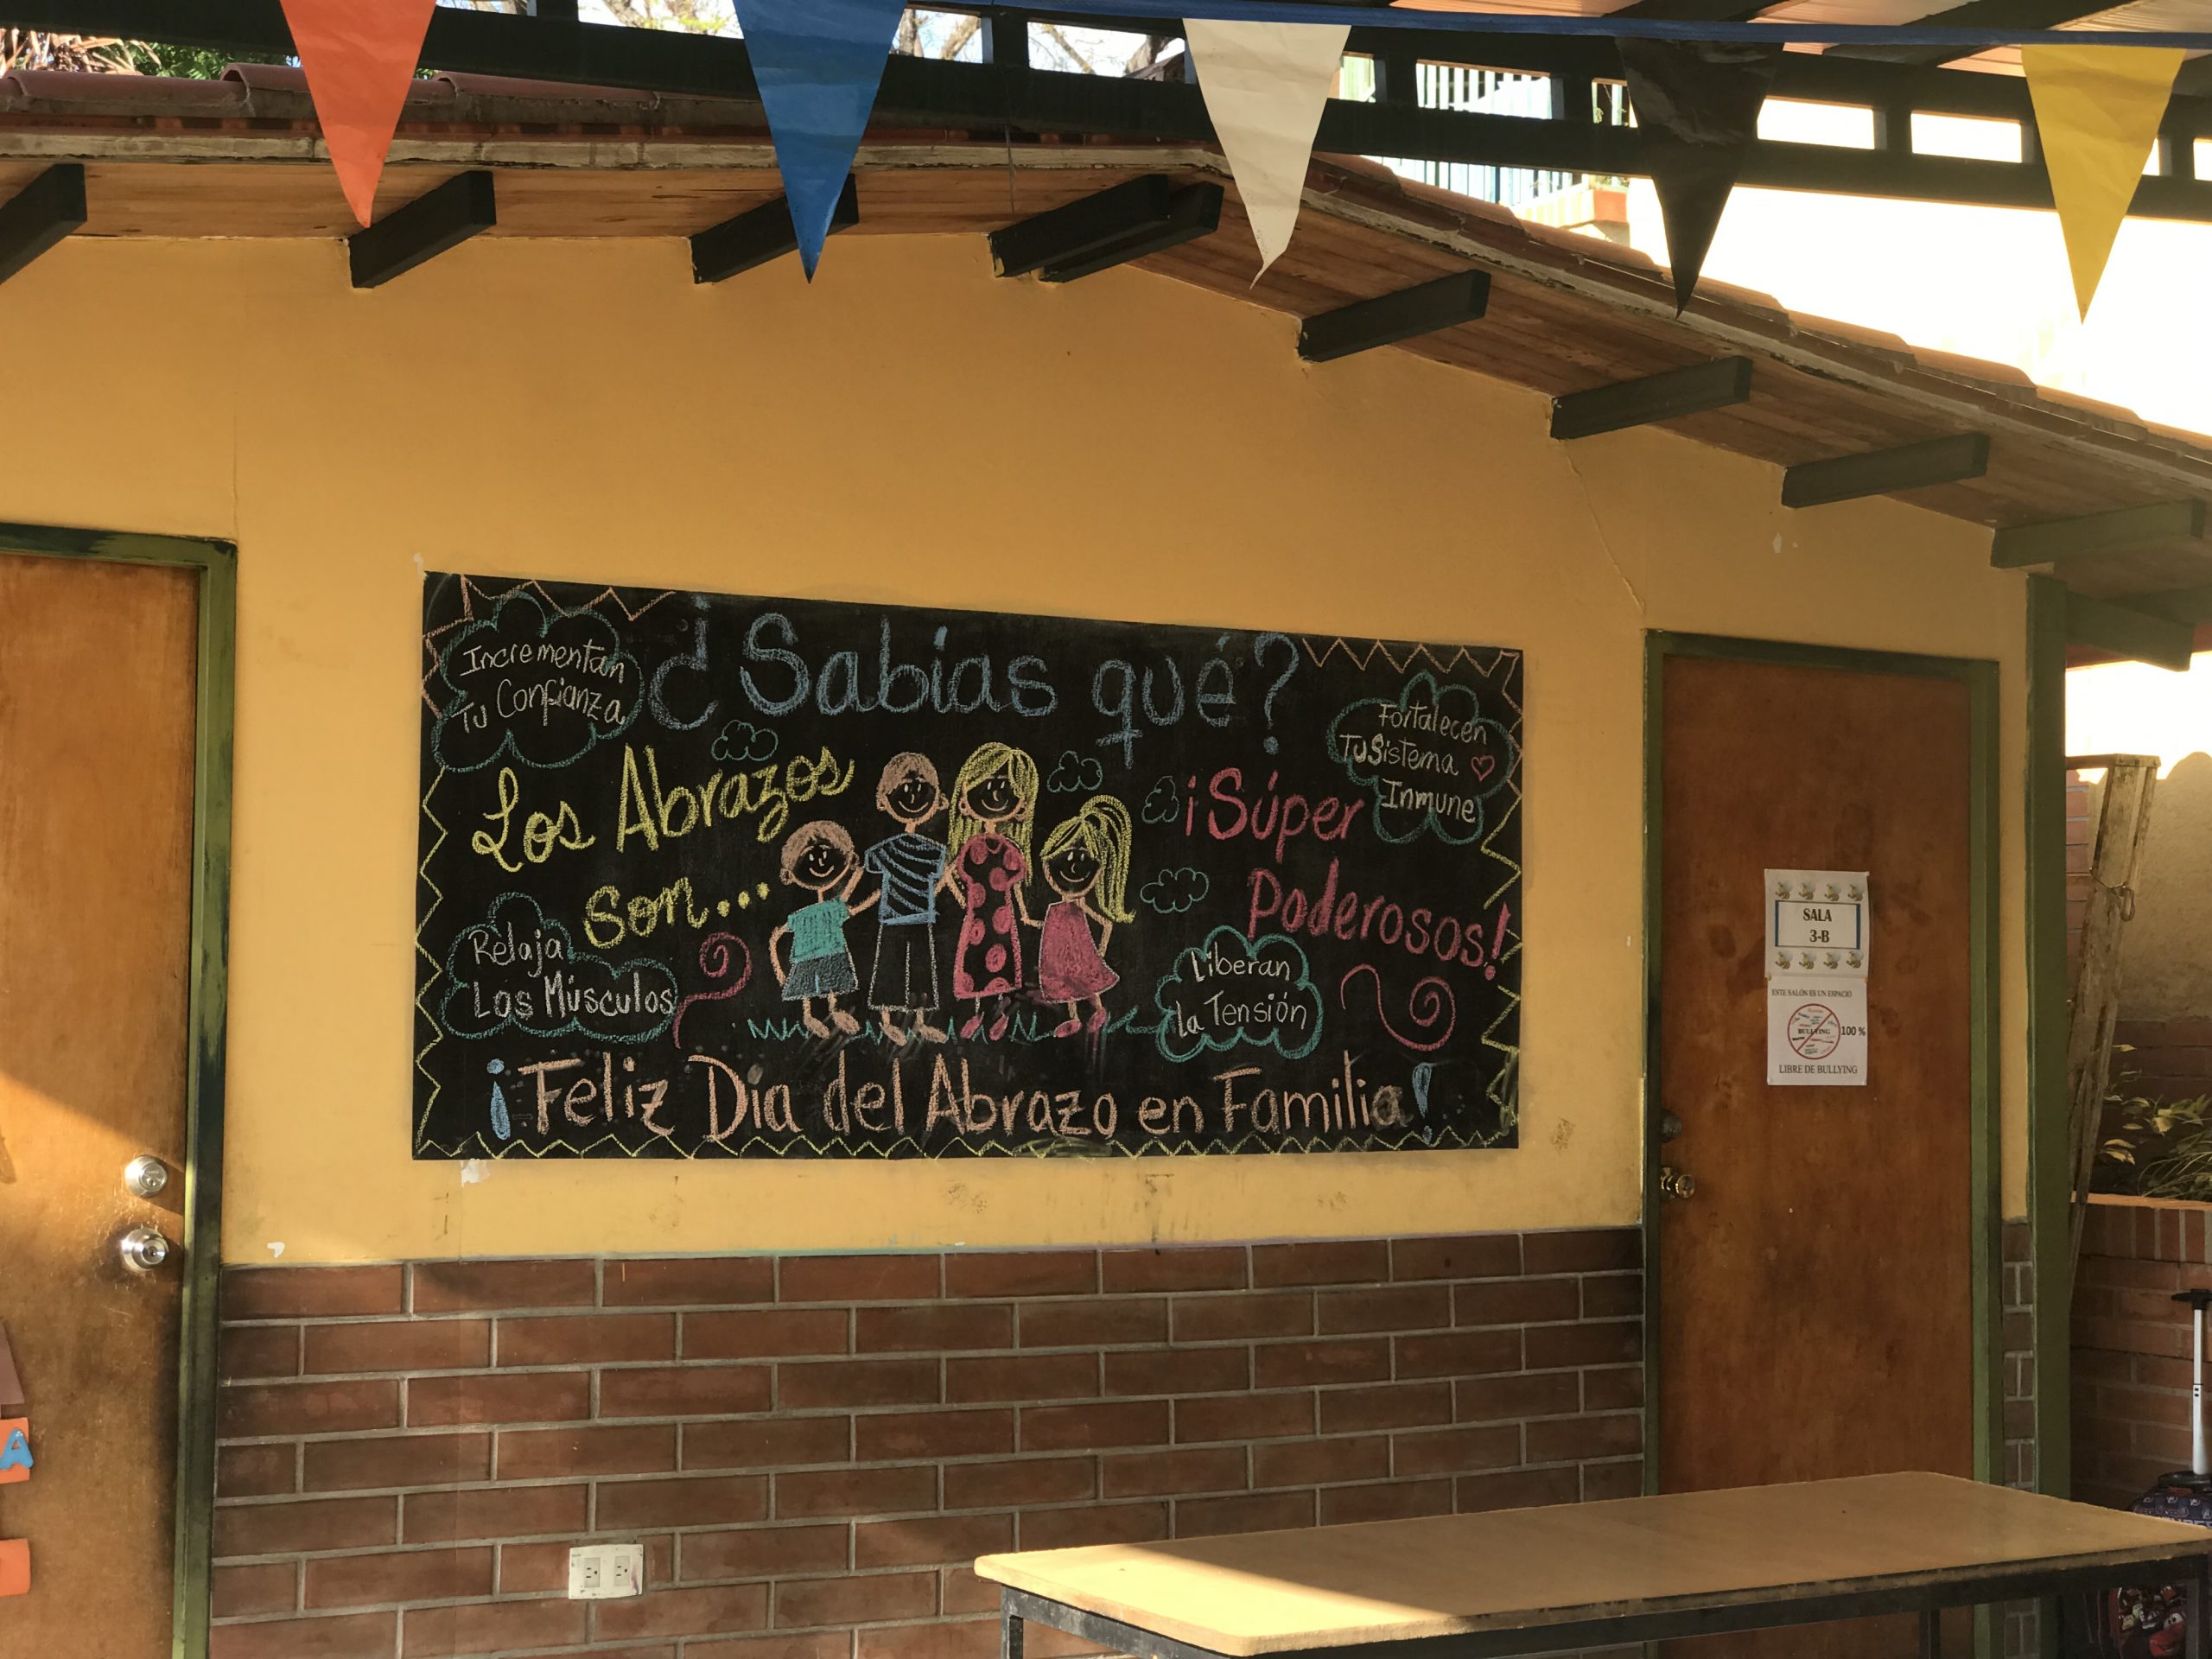 ¿Sabías qué?
Incrementan
Tu Confianza
Fortalecen
Tu Sistema
Inmune
Los Abrazos
son...
¡Súper
Poderosos!
Relaja
Los Músculos
Liberan
la Tensión
¡Feliz Dia del Abrazo en Familia!
SALA
3-B
ESTE SALÓN ES UN ESPACIO
BULLYING
100 %
LIBRE DE BULLYING
A